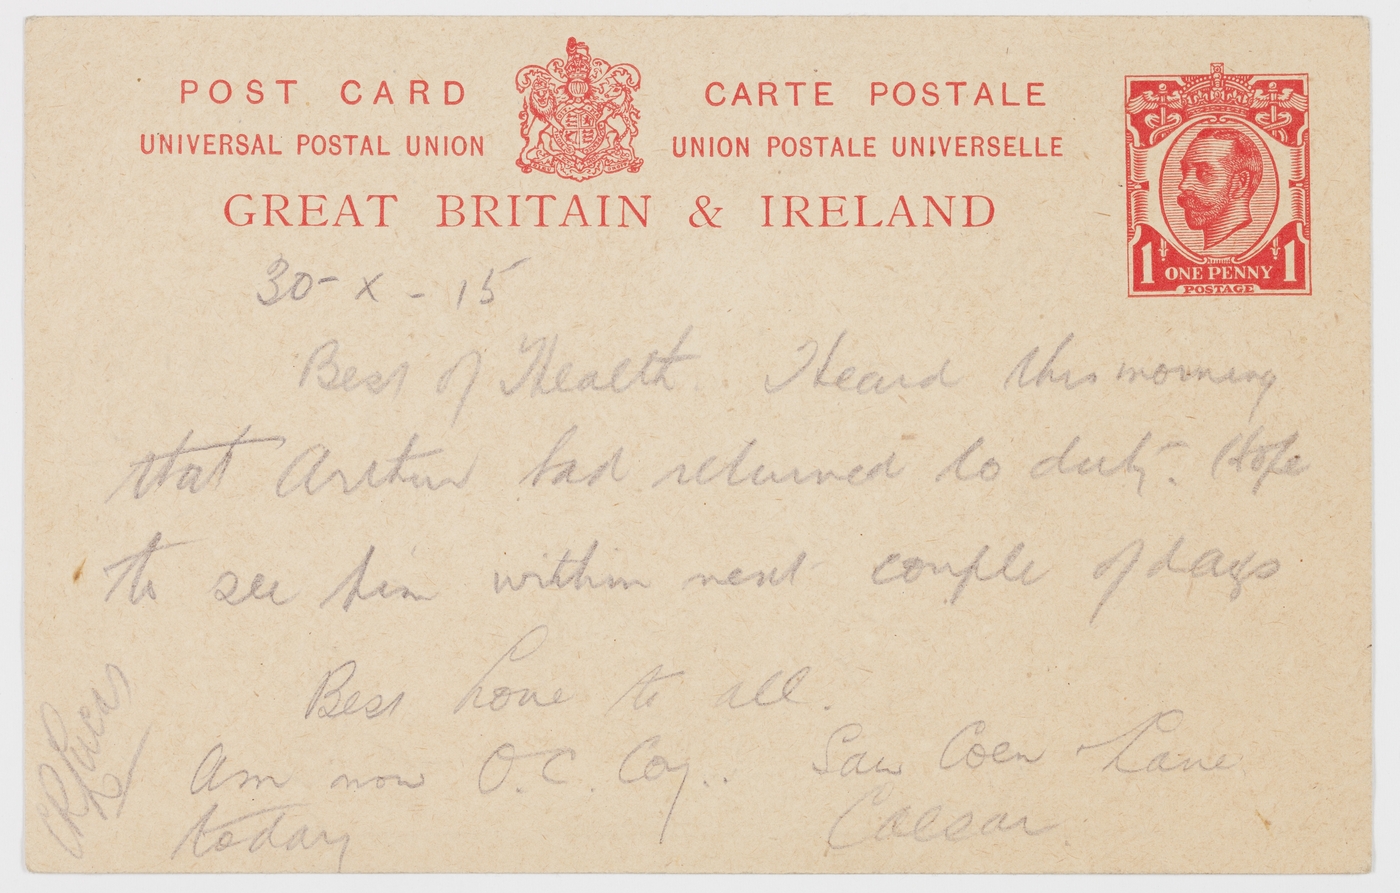 POST CARD CARTE POSTALE
UNIVERSAL POSTAL UNION UNION POSTALE UNIVERSELLE
GREAT BRITAIN & IRELAND
1 ONE PENNY 1
POSTAGE
30-X-15
Best of Health. Heard this morning
that Arthur had returned to duty. Hope
to see him within next couple of days
Best Love to all.
Am now O.C. Coy.. Saw Coen Lane
today Caesar
CRLucas